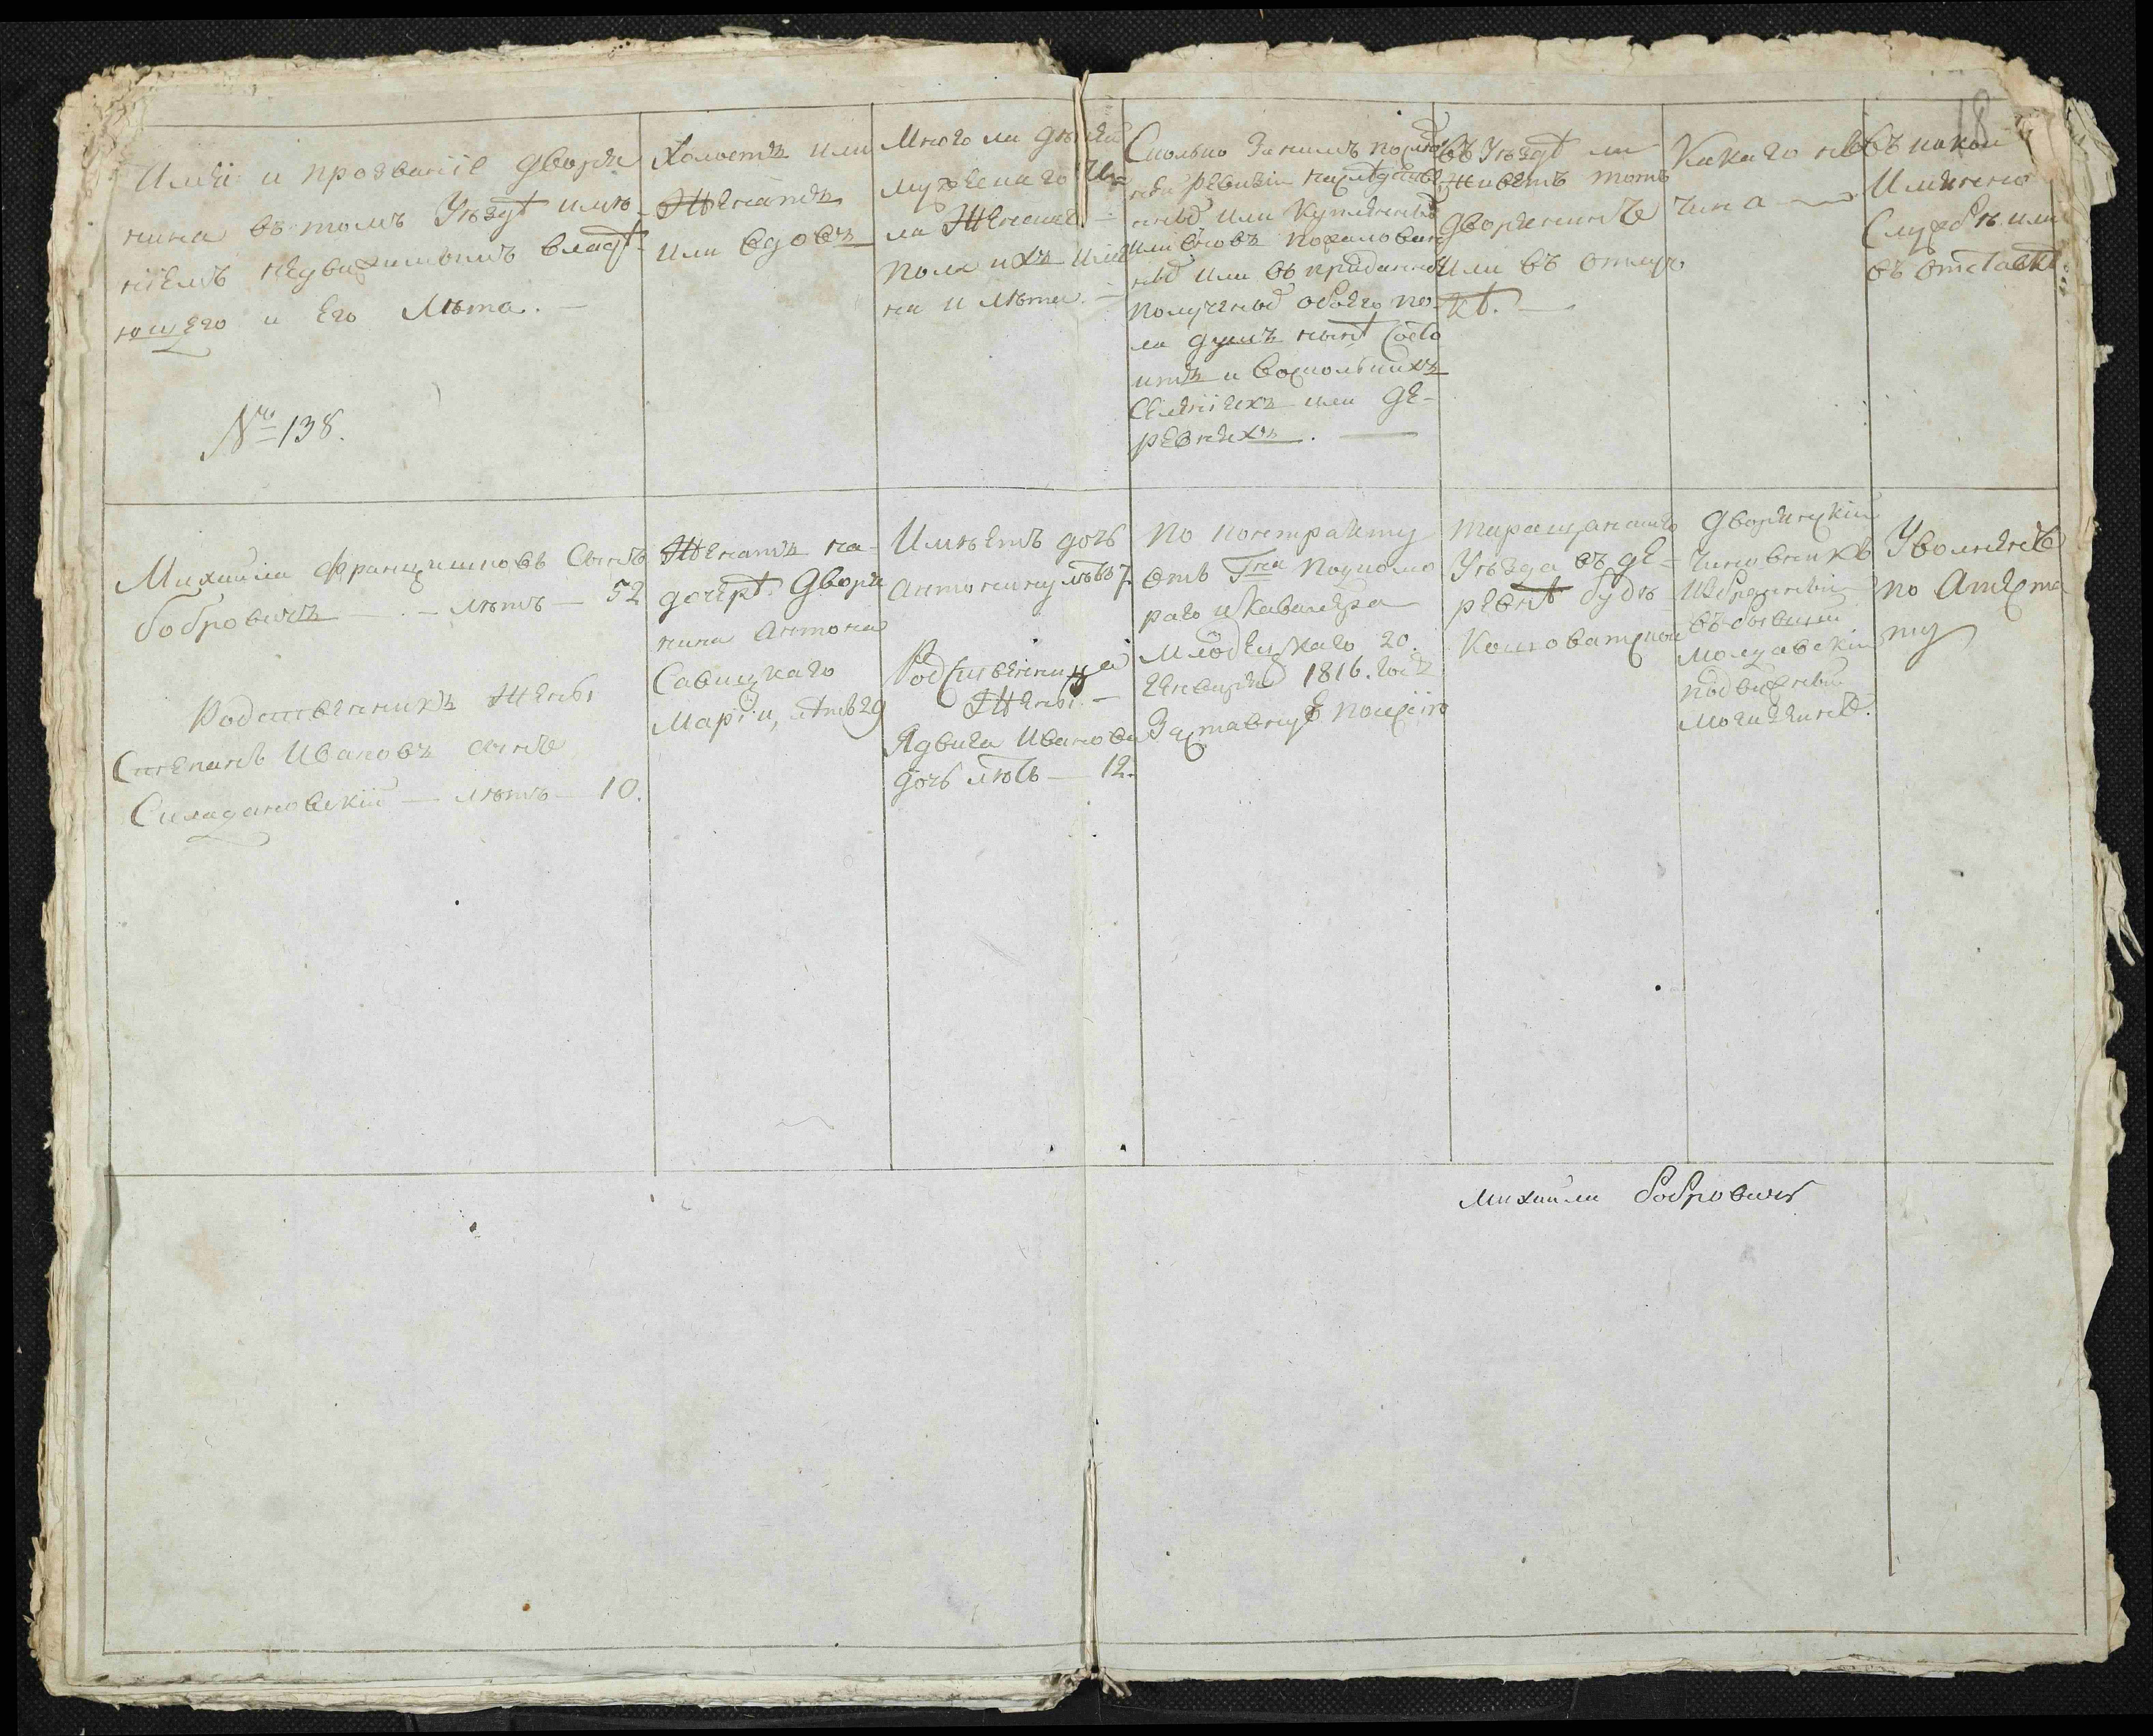 18
Имя и прозвание дворя
нина въ томъ Уѣздѣ имѣ
ніемъ недвижимымъ владѣ
ющего и Его Лѣта.
№ 138.
Холостъ или
Женатъ
или вдовъ
Много ли дѣтей
мужескаго и
ли Женска
пола ихъ име
на и лѣта.
Сколько за нимъ послѣд
ней ревизіи наслѣдствен
ныхъ или купленныхъ
или вновь пожалован
ныхъ или въ приданное
полученныхъ обоего по
ла душъ нынѣ состо
итъ и в сколькихъ
Селеніяхъ или де-
ревняхъ.
Въ Уѣздѣ ли
Живетъ тотъ
Дворянинъ
или въ отлуч
кѣ.
Какаго онъ
чина
въ какой
Именно
Службѣ или
въ отставкѣ
Михайла Францишковъ Сынъ
Бобровичъ — лѣтъ — 52
Родственникъ Жены
Степанъ Ивановъ сынъ
— лѣтъ — 10.
Женатъ на
дочерѣ Дворя
нина Антона
Савицкаго
Маріи, лѣтъ 29
Имѣетъ дочь
Антонину лѣтъ 7.
Родственница
Жены. —
Ядвига Иванова
дочь лѣтъ — 12.
По контракту
отъ Гна Полковн
и Кавалера
20.
Генваря 1816. года
Заставную
Таращанского
Уѣзда въ де-
ревнѣ Будѣ
Кошоватской
Дворянскій
Чиновникъ
Избранный
въ бывшій
Молдавскій
подвижный
магазейнъ.
Уволенъ
по Аттеста
ту
Михайла Бобровичъ